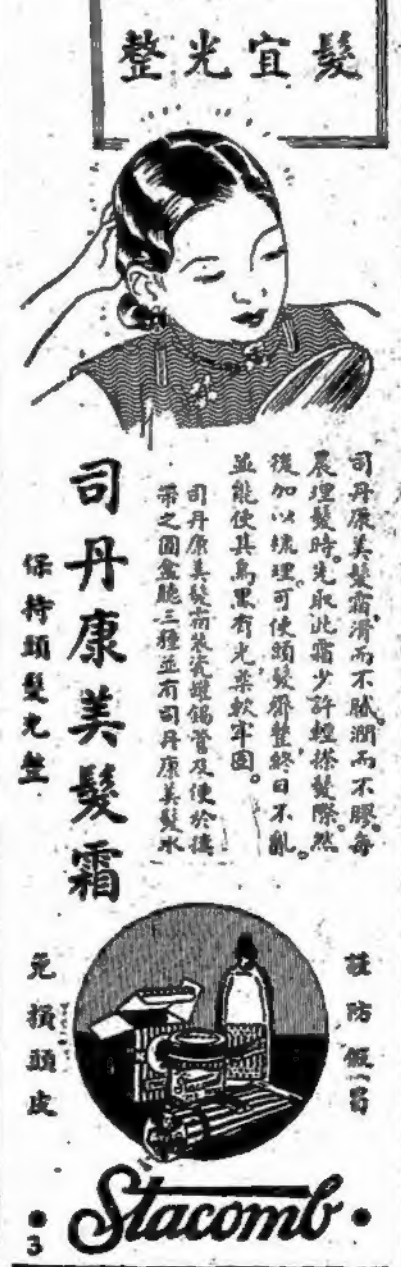 髮宜光整
司丹康美髮霜滑而不膩潤而不膠每
晨理髮時先取此霜少許輕搽髮際然
後加以梳理可使頭髮齊整終日不亂。
並能使其烏黑有光柔軟牢固。
司丹康美髮霜裝瓷罐錫管及便於攜
帶之圓盒三種並有司丹康美髮水
司丹康美髮霜
保持頭髮光整
謹防假冒
無損頭皮
Stacomb
3